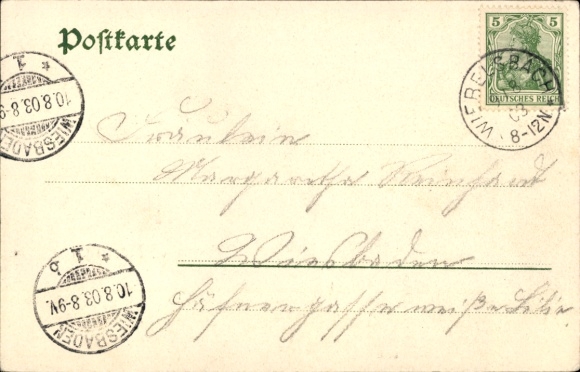 Postkarte
5 5
DEUTSCHES REICH
WIEBELSBACH
03
8-12N
WIESBADEN
* 1
10.8.03.8-9
Fräulein
Margaretha Reinhard
Wiesbaden
Häfnergasse weiße Lilie
* 1 b
10.8.03.8-9V.
WIESBADEN